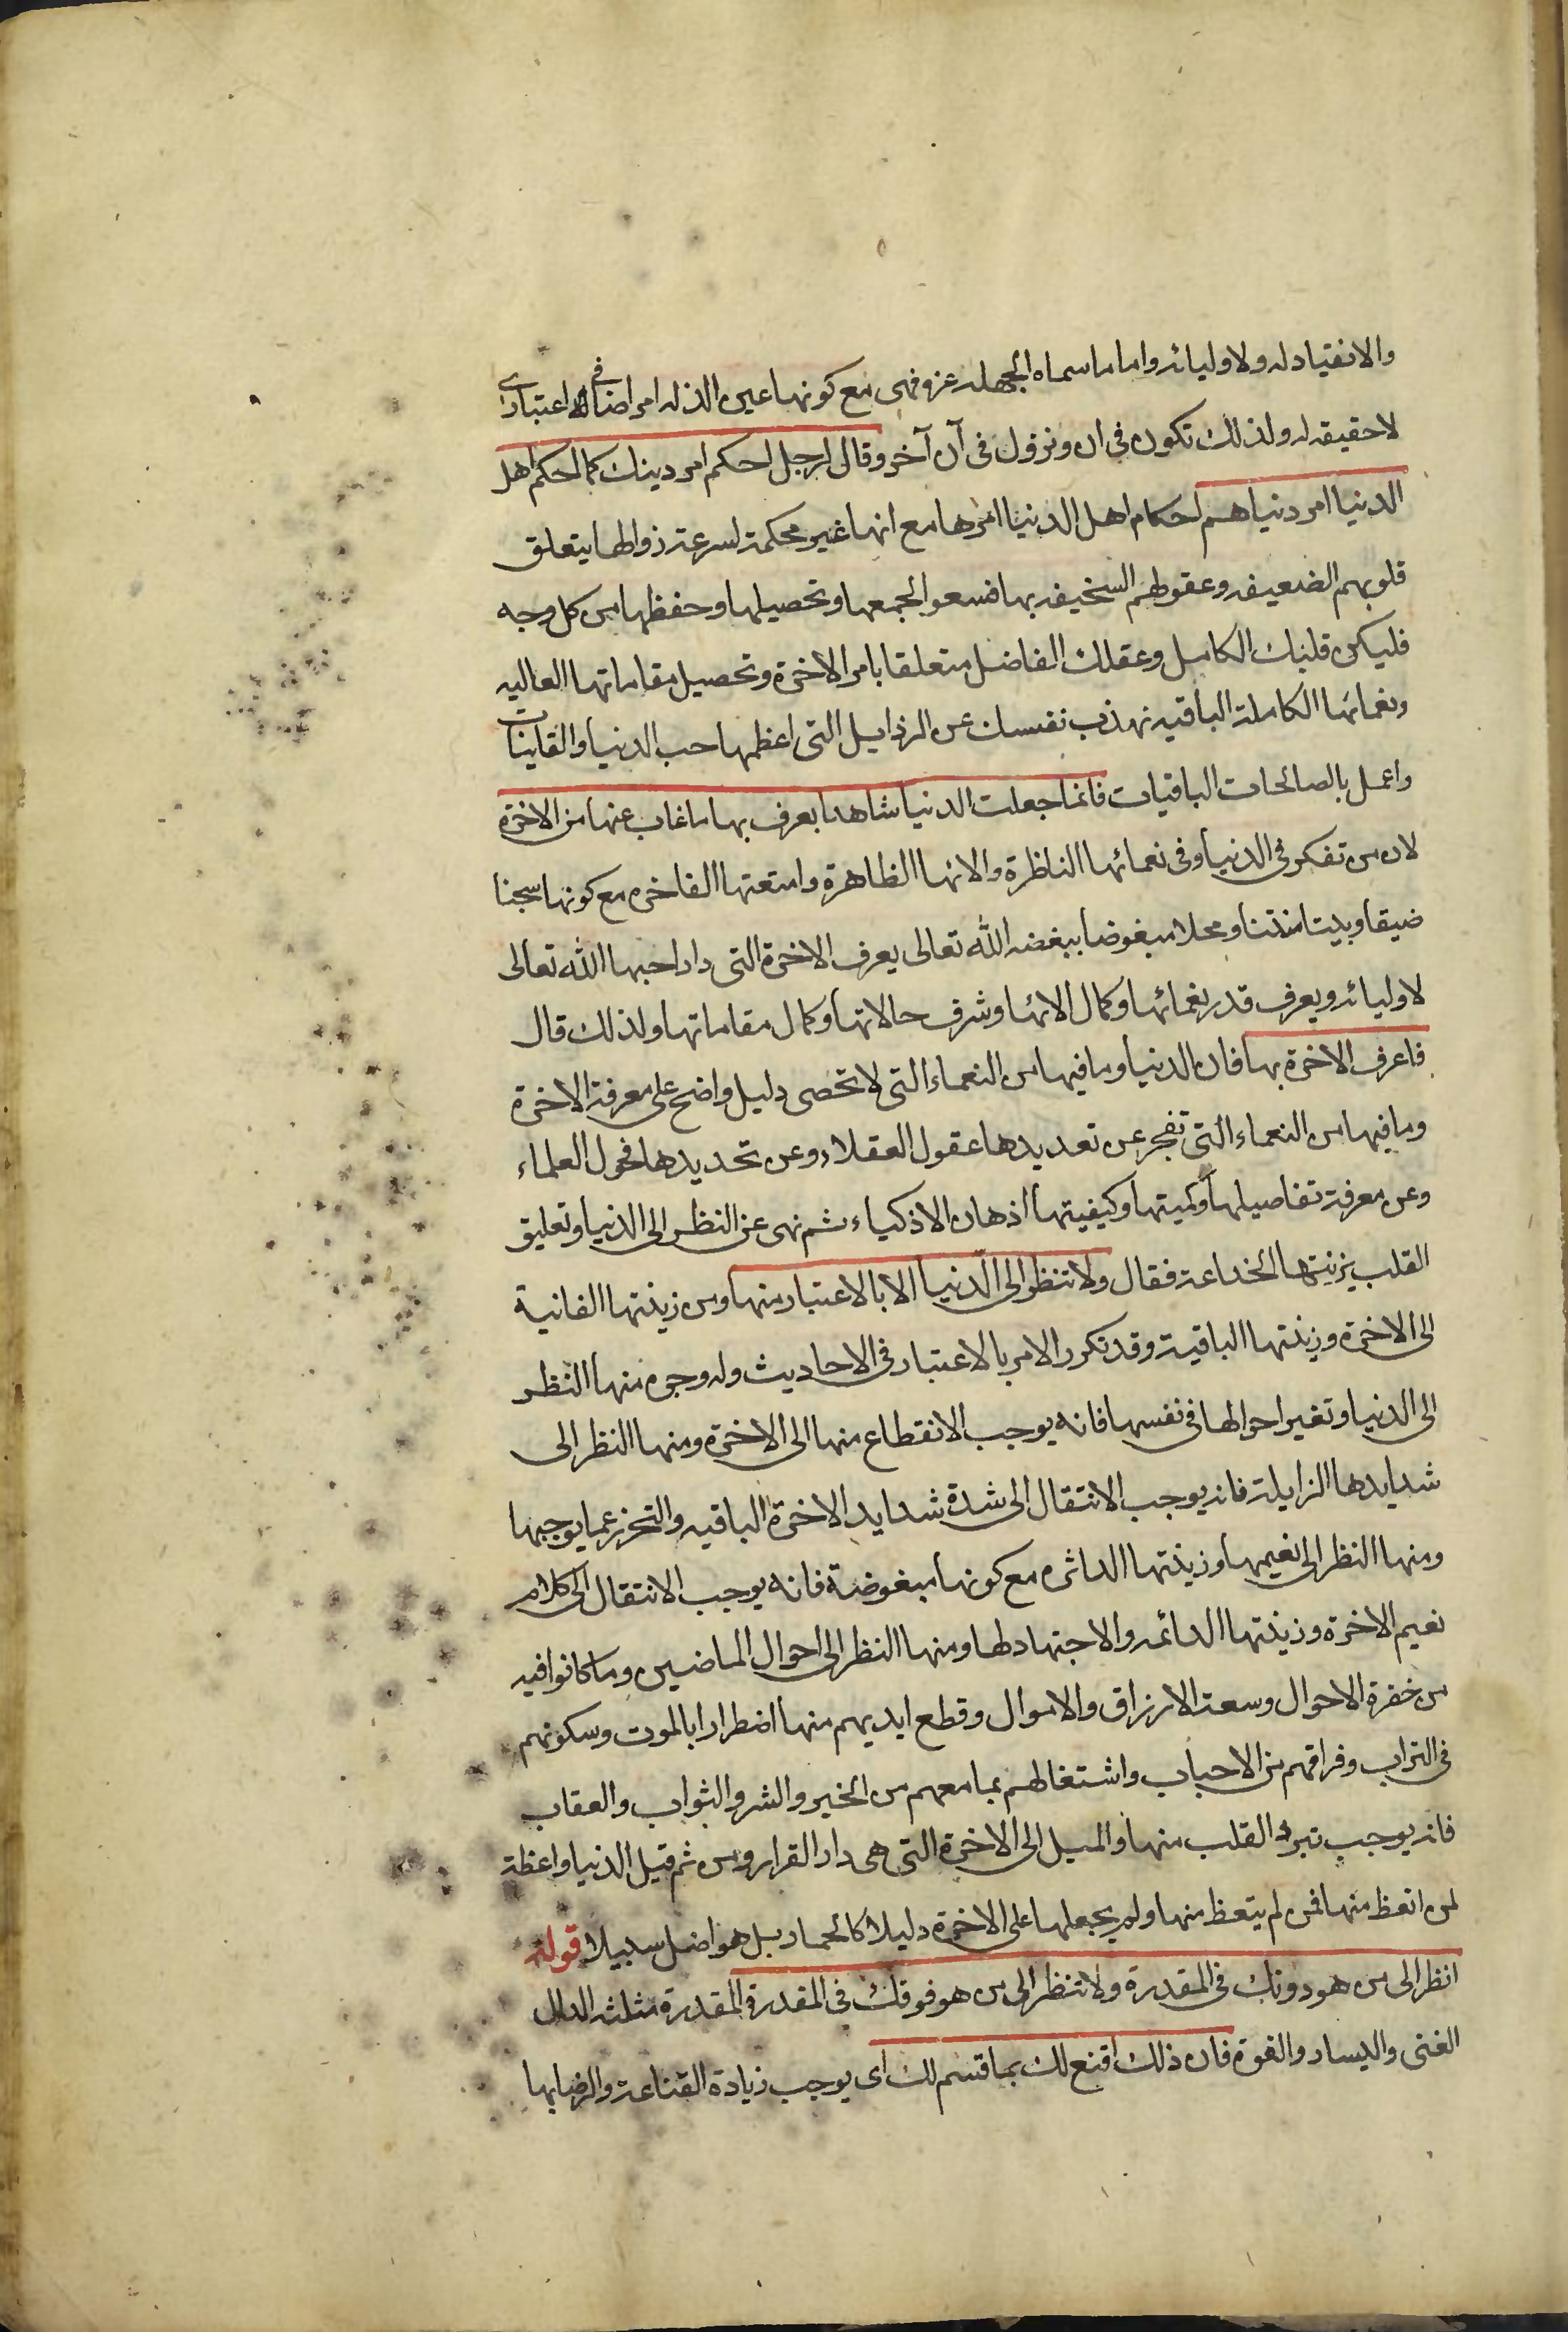 والانقياد له ولاوليائه واما ما سماه الجهله عزة فهى مع كونها عين الذله امر اضافى اعتبارى
لا حقيقه له ولذلك تكون فى ان وتزول فى آن آخر وقال لرجل احكم امر دينك كما احكم اهل
الدنيا امر دنياهم احكام اهل الدنيا امرها مع انها غير محكمة لسرعة زوالها يتعلق
قلوبهم الضعيفه وعقولهم السخيفه بها فسعوا لجمعها وتحصيلها وحفظها من كل وجه
فليكن قلبك الكامل وعقلك الفاضل متعلقا بامر الاخرة وتحصيل مقاماتها العاليه
ونعمائها الكاملة الباقيه تهذب نفسك عن الرذايل التى اعظمها حب الدنيا والفانيات
واعمل بالصالحات الباقيات فانما جعلت الدنيا شاهدا يعرف بها ما غاب عنها من الاخرة
لان من تفكر فى الدنيا وفى نعمائها الناظرة والائها الظاهرة وامتعتها الفاخره مع كونها سجنا
ضيقا وبيتا منتنا ومحلا مبغوضا يبغضه الله تعالى يعرف الاخرة التى دار احبها الله تعالى
لاوليائه ويعرف قدر نعمائها وكمال الائها وشرف حالاتها وكمال مقاماتها ولذلك قال
فاعرف الاخرة بها فان الدنيا وما فيها من النعماء التى لا تحصى دليل واضح على معرفة الاخرة
وما فيها من النعماء التى تعجز عن تعديدها عقول العقلاء وعن تحديدها فحول العلماء
وعن معرفة تفاصيلها وكميتها وكيفيتها اذهان الاذكياء ثم نهى عن النظر الى الدنيا وتعليق
القلب بزينتها الخداعة فقال ولا تنظر الى الدنيا الا بالاعتبار منها ومن زينتها الفانية
الى الاخرة وزينتها الباقية وقد تكرر الامر بالاعتبار فى الاحاديث وله وجوه منها النظر
الى الدنيا وتغير احوالها فى نفسها فانه يوجب الانقطاع منها الى الاخرة ومنها النظر الى
شدايدها الزايلة فانه يوجب الانتقال الى شدة شدايد الاخرة الباقيه والتحرز عما يوجبها
ومنها النظر الى نعيمها وزينتها الداثره مع كونها مبغوضة فانه يوجب الانتقال الى كمال
نعيم الاخرة وزينتها الدائمه والاجتهاد لها ومنها النظر الى احوال الماضين وما كانوا فيه
من خضرة الاحوال وسعة الارزاق والاموال وقطع ايديهم منها اضطرارا بالموت وسكونهم
فى التراب وفراقهم من الاحباب واشتغالهم بما معهم من الخير والشر والثواب والعقاب
فانه يوجب تبرد القلب منها والميل الى الاخرة التى هى دار القرار ومن ثم قيل الدنيا واعظة
لمن اتعظ منها فمن لم يتعظ منها ولم يجعلها على الاخرة دليلا كالحمار بل هو اضل سبيلا قوله
انظر الى من هو دونك فى المقدرة ولا تنظر الى من هو فوقك فى المقدرة المقدرة مثلثه الدال
الغنى واليسار والقوة فان ذلك اقنع لك بما قسم لك اى يوجب زيادة القناعة والرضا بها